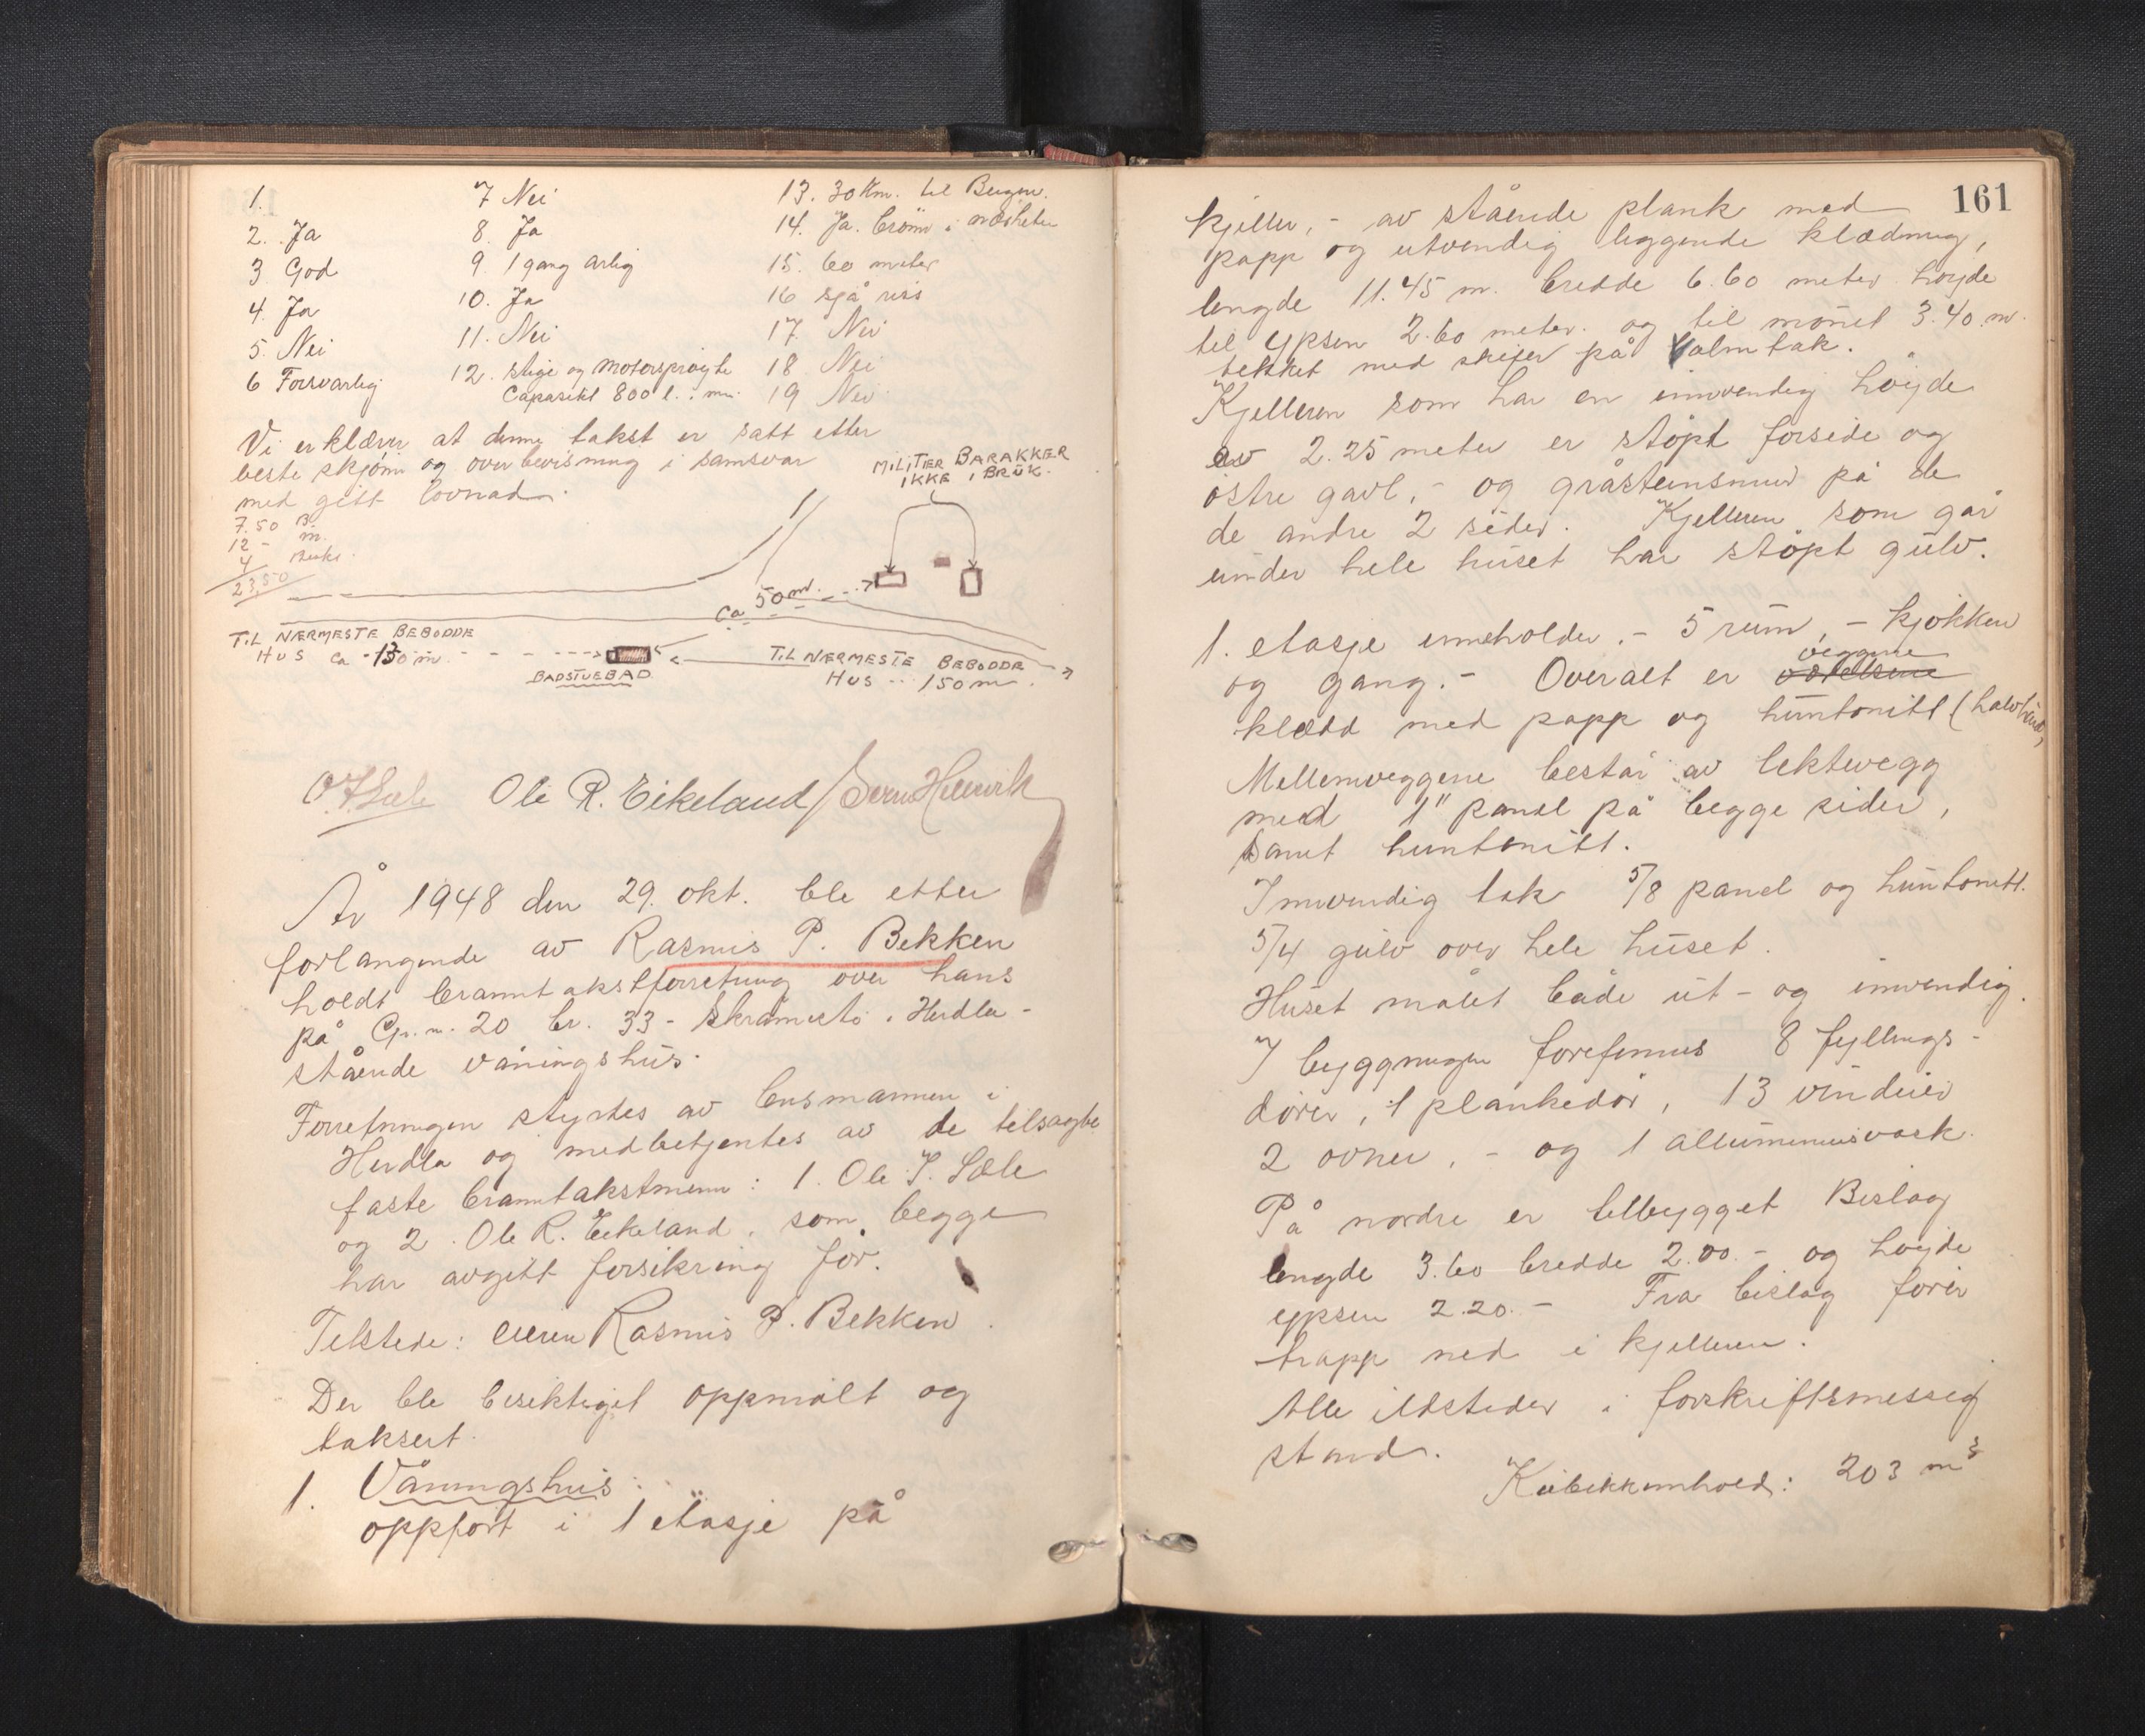 1.
2. Ja
3 God
4. Ja
5. Nei
6 Forsvarlig
7 Nei
8. Ja
9. 1 gang årlig
10. Ja
11. Nei
12. stige og motorsprøyte
Capasitet 800 l. i mn.
13. 30 Km. til Bergen.
14. Ja. brønn i nærheten
15. 60 meter
16 sjå riss
17. Nei
18. Nei
19 Nei
Vi erklærer at denne takst er satt etter
beste skjønn og overbevisning i samsvar
med gitt lovnad.
7.50 B.
12 - m.
4
23,50
MILITÆR BARAKKER
IKKE I BRUK.
ca 50 m.
TIL NÆRMESTE BEBODDE
HUS ca - 130 m.
BADSTUEBAD
TIL NÆRMESTE BEBODDE
HUS -- 150 m.
O I Sæle Ole R. Eikeland
År 1948 den 29. okt. ble etter
forlangende av Rasmus P. Bekken
holdt branntakstforretning over hans
på Gr. n. 20 br. 33 - Skramestø i Herdla -
stående våningshus.
Forretningen styrtes av lensmannen i
Herdla og medbetjentes av de tilsagte
faste branntakstmenn: 1. Ole I. Sæle
og 2. Ole R. Eikeland, som begge
har avgitt forsikring før.
Tilstede: eieren Rasmus P. Bekken.
Der ble besiktiget oppmålt og
taksert.
1. Våningshus:
oppført i 1 etasje på
161
kjeller, - av stående plank med
papp og utvendig liggende klædning,
lengde 11.45 m. bredde 6.60 meter høyde
til ypsen 2.60 meter. og til mønet 3.40 m.
tekket med skifer på Valmtak.
Kjelleren som har en innvendig høyde
av 2.25 meter er støpt forside og
østre gavl, - og gråsteinsmur på de
de andre 2 sider. Kjelleren som går
under hele huset har støpt gulv.
1. etasje inneholder. - 5 rum, - kjøkken
og gang. - Overalt er værelsene veggene
klædd med papp og huntonitt (halvhård)
Mellemveggene består av lektevegg
med 1" panel på begge sider,
samt huntonitt.
Innvendig tak 5/8 panel og huntonitt.
5/4 gulv over hele huset.
Huset målet både ut - og innvendig.
I byggningen forefinnes 8 fyllings -
dører, 1 plankedør, 13 vinduer
2 ovner, - og 1 alluminiusvask.
På nordre er tilbygget Bislag
lengde 3.60 bredde 2.00 - og høyde
ypsen 2.20. - Fra bislag fører
trapp ned i kjelleren.
Alle ildsteder i forskriftsmessig
stand.
Kubikkinnhold: 203 m³